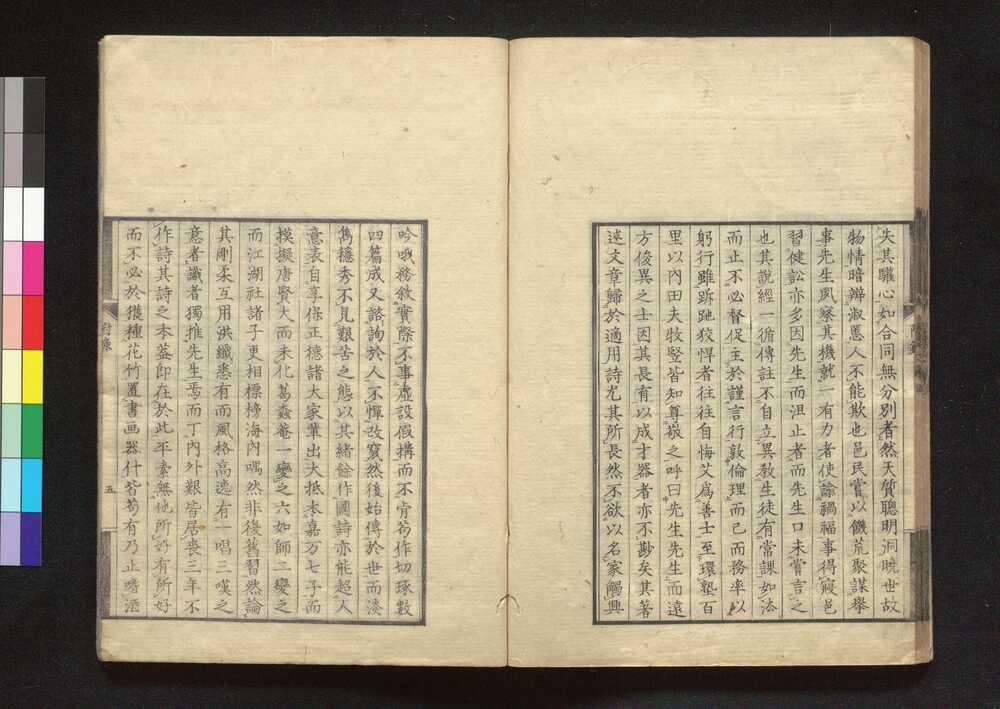 失其驩心如合同無分別者然天質聰明洞曉世故
物情暗辦淑慝人不能欺也邑民嘗以饑荒聚謀舉
事先生夙察其機就一有力者使諭禍福事得寢邑
習健訟亦多因先生而沮止者而先生口未嘗言之
也其說經一循傳註不自立異教生徒有常課如法
而止不必督促主於謹言行敦倫理而已而務率以
躬行雖跅跑狡悍者往往自悔艾爲善士至環塾百
里以內田夫牧豎皆知尊敬之呼曰先生先生而遠
方俊異之士因其長有以成才器者亦不尠矣其著
述文章歸於適用詩尤其所長然不欲以名家觸興
吟哦務敘實際不事虛設假構而不肯苟作切琢數
四篇成又諮詢於人不憚改竄然後始傳於世而湊
雋穩秀不見艱苦之態以其緒餘作國詩亦能超人
意表自享保正德諸大家輩出大抵本嘉万七子而
摸擬唐賢大而未化葛蠧菴一變之六如師二變之
而江湖社諸子更相標榜海內喁然非復舊習然論
其剛柔互用洪纖悉有而風格高逸有一唱三嘆之
意者識者獨推先生焉而丁內外艱皆居喪三年不
作詩其詩之本葢即在於此平素無他所好有所好
而不必於獲種花竹置書画器什皆苟有乃止嗜酒
附錄
五
附錄